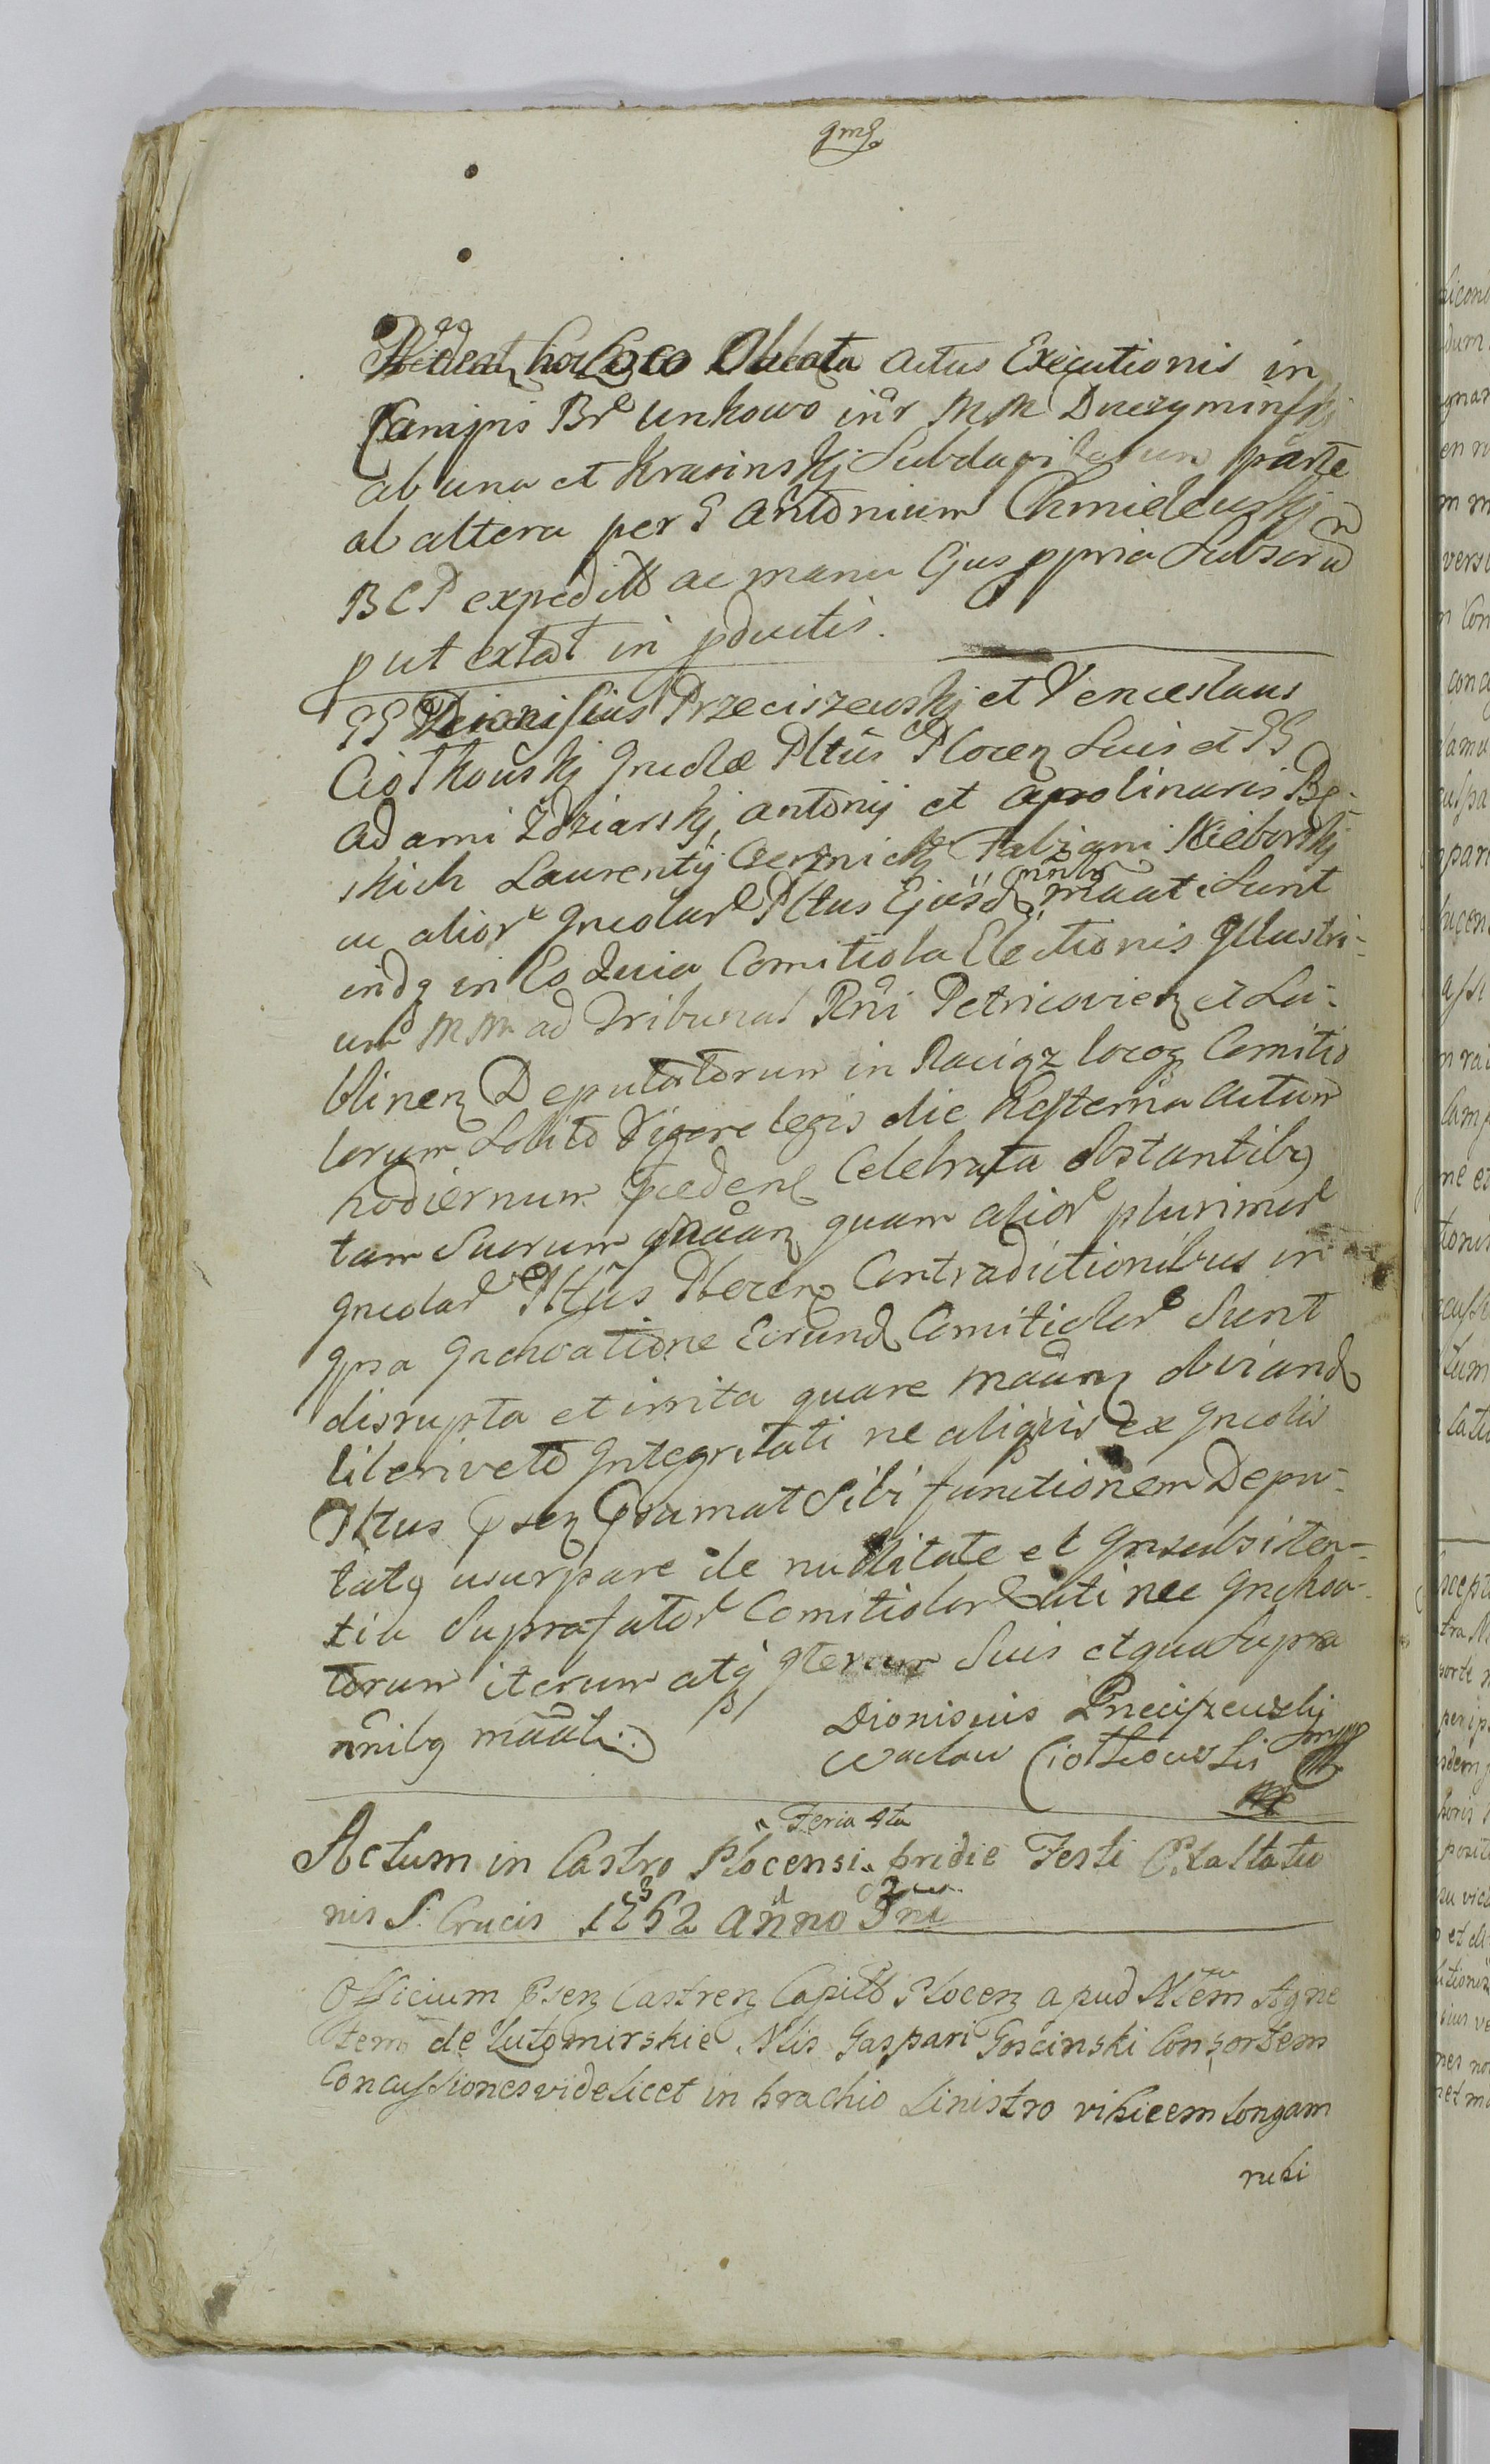 hoc loco Oblata actus Executionis in
Campis Br̃ Unkowo MM Duczyminskj
ab una et Krasinskj parte
ab altera per G Antonium Chmielewskj
BCP expedit ac manu Ejus ppria Subscr
put extat in pductis.
GG Dionisius Przeciszewskj et Venceslaus
Ciołkowskj Incolæ Pltũs Plocen Suis et GG
Adami Zdziarskj, Antonij et Apolinaris
skich Laurentij Fabiani Kieborskj
ac alior Incolar Pltus Ejusd maãti Sunt
indq in Eo quia Comitiola Electionis Illustri-
um MM ad Tribunal Rñi Petricovien et Lu-
blinen Deputatorum in Raciąz locoq Comitio
lorum Solito Vigore legis die hesterna actum
hodiernum pcedent Celebrata obstantibq
tam Suorum maãn quam alior plurimor
Incolar Pltũs Plocen Contradictionibus in
Ipsa Inchoatione Eorund Comitiolor Sunt
disrupta et irrita quare maãnt obviand
liberi veto Integritati ne aliquis ex Incolis
Pltus psen psumat Sibi functionem Depu-
tatq usurpare de nullitate et Insubsisten-
tia Suprafator Comitiolor uti nec Inchoa-
torum iterum atq Iterum Suis et qua Supra
nñibq maãt.
Dionisius Przeciszewskj
Wacław Ciołkowski mpp
Feria 4ta
Actum in Castro Plocensi pridie Festi Exaltatio
nis S. Crucis 1762 anno Dni
Officium Psen Castren Capitt Plocen apud Nlem Agne
tem de Lutomirskie Nlis Gaspari Goscinski Consortem
Concussiones videlicet in brachio Sinistro vibicem longam
rubi